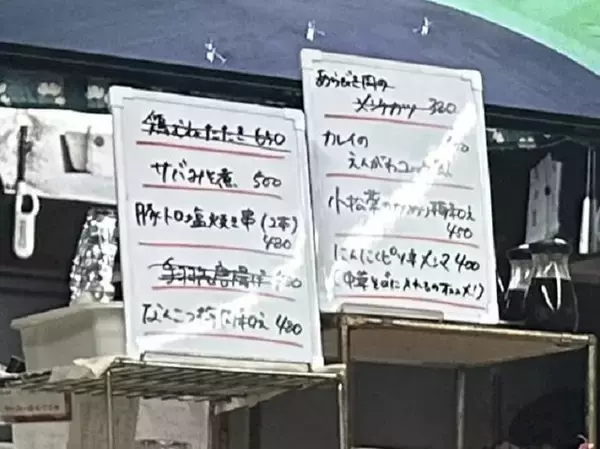 鶏むねたたき 650
サバみそ煮 500
豚トロ塩焼き串(2本)
480
手羽先唐揚げ
なんこつ梅 和え 480
あらびき肉の
メンチカツ 380
カルイの
えんがわ
小松菜の 和え
450
にんにくピリ辛メンマ 400
(中華そばに入れるのオススメ!)